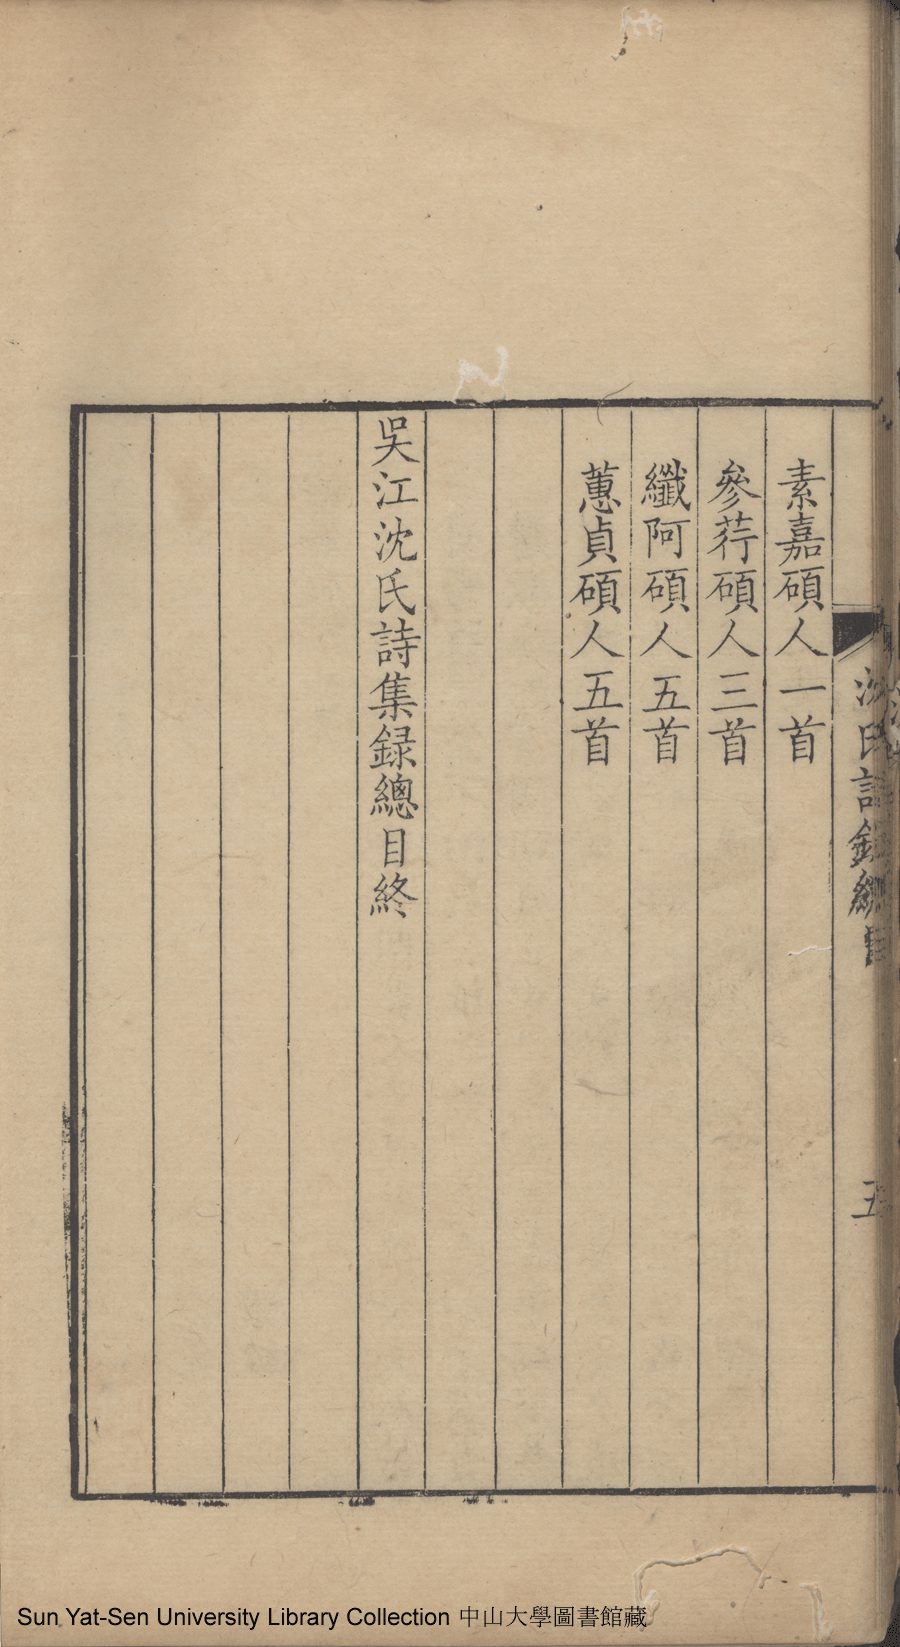 沈氏詩録總目
五
素嘉碩人一首
參荇碩人三首
纖阿碩人五首
蕙貞碩人五首
吳江沈氏詩集録總目終
Sun Yat-Sen University Library Collection 中山大學圖書館藏